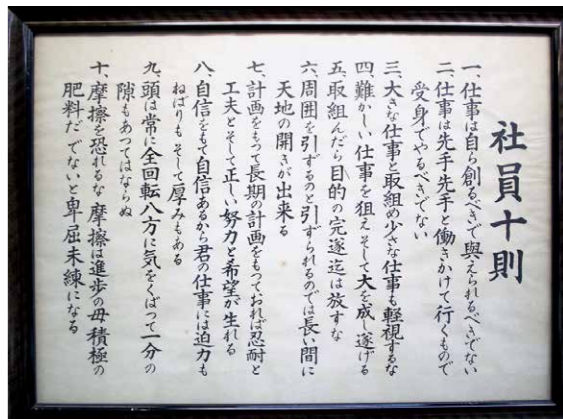 社員十則
一、仕事は自ら創るべきで與えられるべきでない
二、仕事は先手先手と働きかけて行くもので
受身でやるべきでない
三、大きな仕事と取組め少さな仕事も軽視するな
四、難かしい仕事を狙えそして大を成し遂げる
五、取組んだら目的の完遂迄は放すな
六、周囲を引ずるのと引ずられるのでは長い間に
天地の開きが出来る
七、計画をもつて長期の計画をもつておれば忍耐と
工夫とそして正しい努力と希望が生れる
八、自信をもて自信あるから君の仕事には迫力も
ねばりもそして厚みもある
九、頭は常に全回転八方に気をくばつて一分の
隙もあつてはならぬ
十、摩擦を恐れるな 摩擦は進歩の母積極の
肥料だ でないと卑屈未練になる